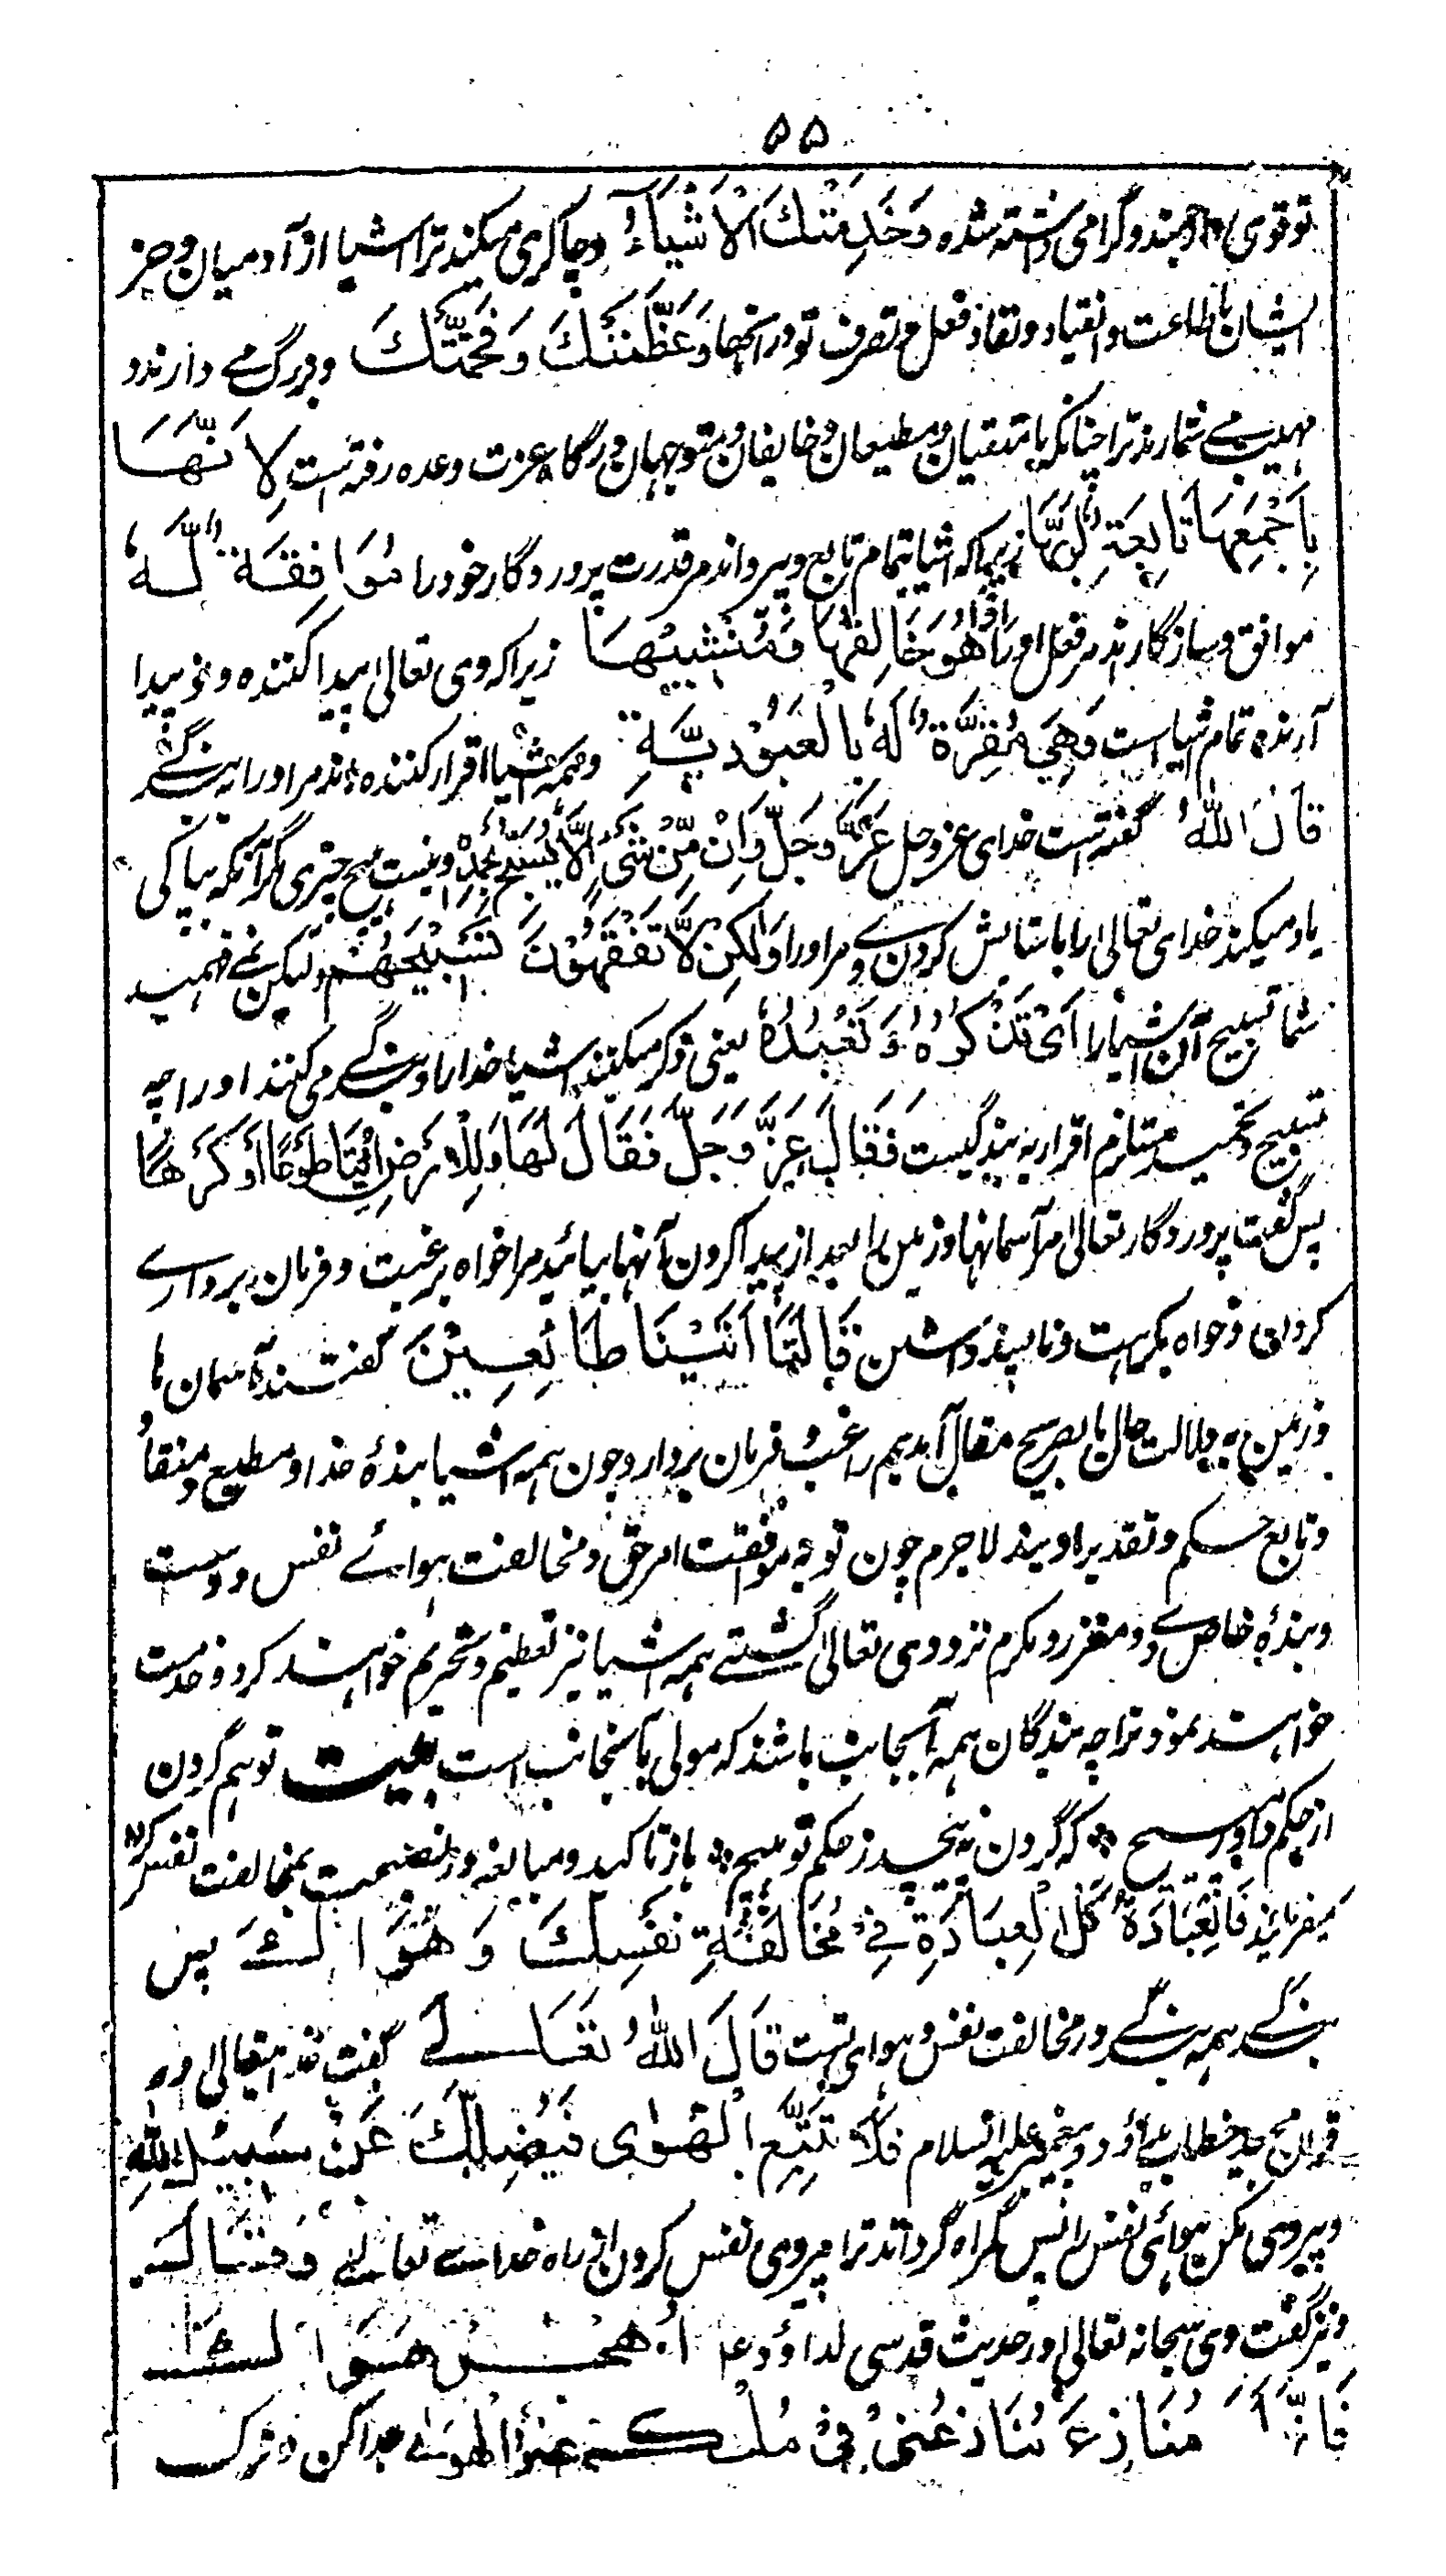 ۵۵
تو قوی و ارجمند و گرامی داشته شده وَخَدِمَتْكَ الْاَشْيَآءُ و چاکری میکنند ترا اشیا از آدمیان و جز
ایشان باطاعت و انقیاد و نفاذ فعل و تصرف تو در آنها وَعَظَّمَتْكَ وَفَخَّمَتْكَ و بزرگ مے دارند و
مهیب مے شمارند ترا چنانکه با متقیان و مطیعان و خایفان و متوجهان درگاه عزت وعده رفته است لِاَنَّهَا
بِاَجْمَعِهَا تَابِعَةٌ لِرَبِّهَا زیرا که اشیا تمام تابع و پیرو اند مر قدرت پروردگار خود را مُوَافِقَةٌ لَّهٗ
موافق و سازگارند مر فعل او را اِذْ هُوَ خَالِقُهَا وَمُنْشِيْهَا زیرا که وی تعالیٰ پیدا کننده و نو پیدا
آرنده تمام اشیا است وَهِيَ مُقِرَّةٌ لَهٗ بِالْعُبُوْدِيَّةِ و همه اشیا اقرار کننده اند مر او را به بندگے
قَالَ اللّٰهُ گفته است خدای عز و جل عَزَّ وَجَلَّ وَاِنْ مِّنْ شَیْءٍ اِلَّا يُسَبِّحُ بِحَمْدِهٖ و نیست هیچ چیزی مگر آنکه بپاکی
یاد میکند خدای تعالیٰ را با ستایش کردن وے مر او را وَلٰكِنْ لَّا تَفْقَهُوْنَ تَسْبِيْحَهُمْ ولیکن نمے فهمید
شما تسبیح آن اشیا را اَیْ تَذْكُرُهٗ وَتَعْبُدُهٗ یعنی ذکر میکنند اشیا خدا را و بندگے می کنند او را چه
تسبیح و تحمید مستلزم اقرار به بندگیست فَقَالَ عَزَّ وَجَلَّ فَقَالَ لَهَا وَلِلْاَرْضِ ائْتِيَا طَوْعًا اَوْ كَرْهًا
پس گفت پروردگار تعالیٰ مر آسمانها و زمین را بعد از پیدا کردن آنها بیائید مرا خواه برغبت و فرمان بردارے
کردن و خواه بکراهت و ناپسند داشتن قَالَتَا اَتَيْنَا طَائِعِيْنَ گفتند آسمان ها
و زمین به دلالت حال یا بصریح مقال آمدیم راغب و فرمان بردار و چون همه اشیا بندهٔ خدا و مطیع و منقاد
و تابع حکم و تقدیر اویند لاجرم چون تو به موافقت امر حق و مخالفت هوائے نفس دوست
و بندهٔ خاص وے و معزز و مکرم نزد وی تعالیٰ گشتے همه اشیا نیز تعظیم و تکریم خواهند کرد و خدمت
خواهند نمود ترا چه بندگان همه آنجانب باشند که مولی بآنجانب است بیت تو هم گردن
از حکم داور مپیچ * که گردن نه پیچد ز حکم تو هیچ * باز تاکید و مبالغه در نصیحت بمخالفت نفس کرده
میفرمایند فَالْعِبَادَةُ كُلُّ الْعِبَادَةِ فِیْ مُخَالَفَةِ نَفْسِكَ وَهَوَاكَ پس
بندگے همه بندگے در مخالفت نفس و هوای تست قَالَ اللّٰهُ تَعَالٰے گفت خدا یتعالیٰ در
قرآن مجید خطاب بداؤد پیغمبر علیه السلام فَلَا تَتَّبِعِ الْهَوٰی فَيُضِلَّكَ عَنْ سَبِيْلِ اللّٰهِ
و پیروی مکن هوائی نفس را پس گمراه گرداند ترا پیروی نفس کردن از راه خداے تعالےٰ وَقَالَ
و نیز گفت وی سبحانه تعالیٰ در حدیث قدسی لداؤد عا اُهْجُرْ هَوَاكَ
فَاِنَّهٗ مُنَازِعٌ يُنَازِعُنِیْ فِیْ مُلْكِیْ هوائے جدا کن و ترک